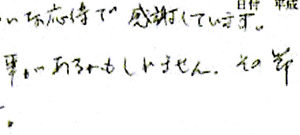 日付 平成
い応待で感謝しています。
事があるかもしれません。その節
。